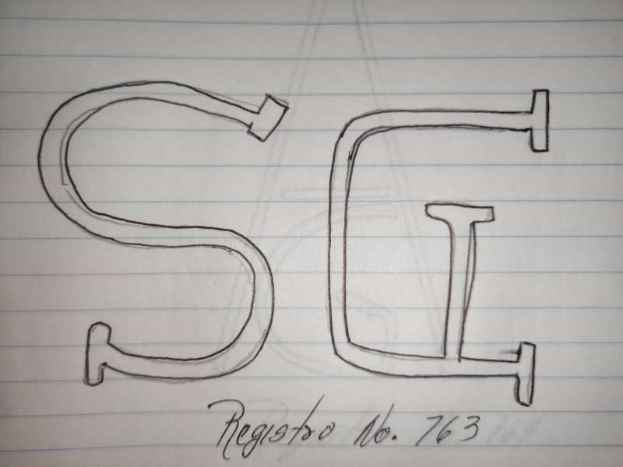 SG
Registro No. 763